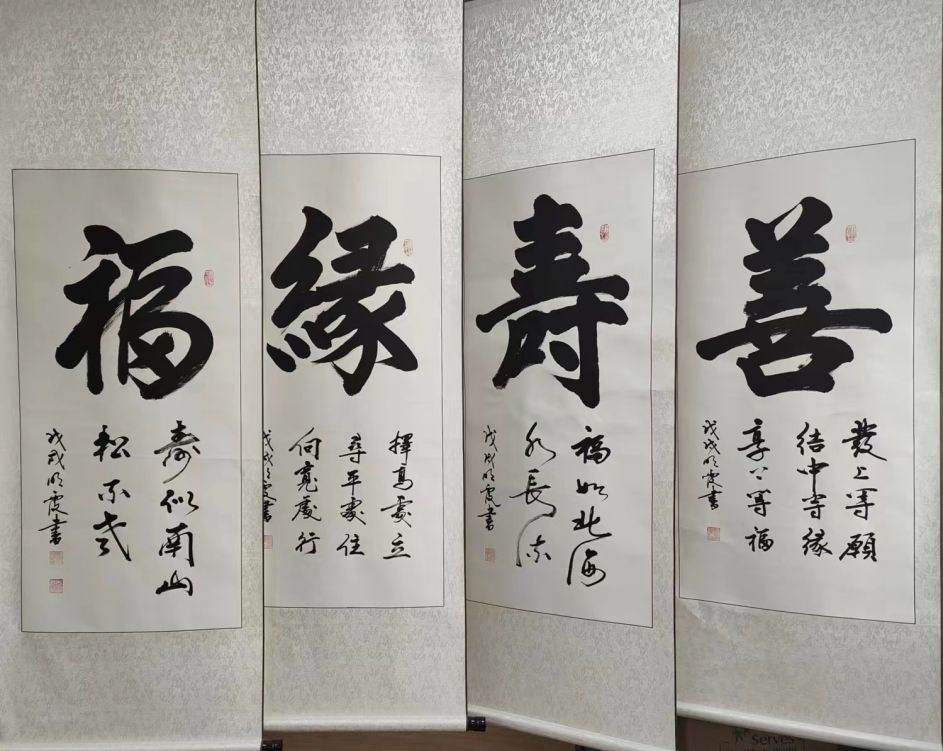 善
發上等願
結中等緣
享下等福
戊戌明霞書
寿
福如北海
水長流
戊戌明霞書
緣
擇高處立
尋平處住
向寬處行
戊戌霞書
福
壽似南山
松不老
戊戌明霞書
Serves